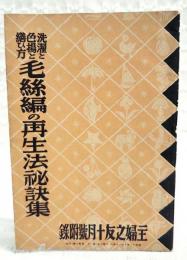 洗濯と
色揚と
繕ひ方
毛絲編の再生法祕訣集
主婦之友十月號附錄